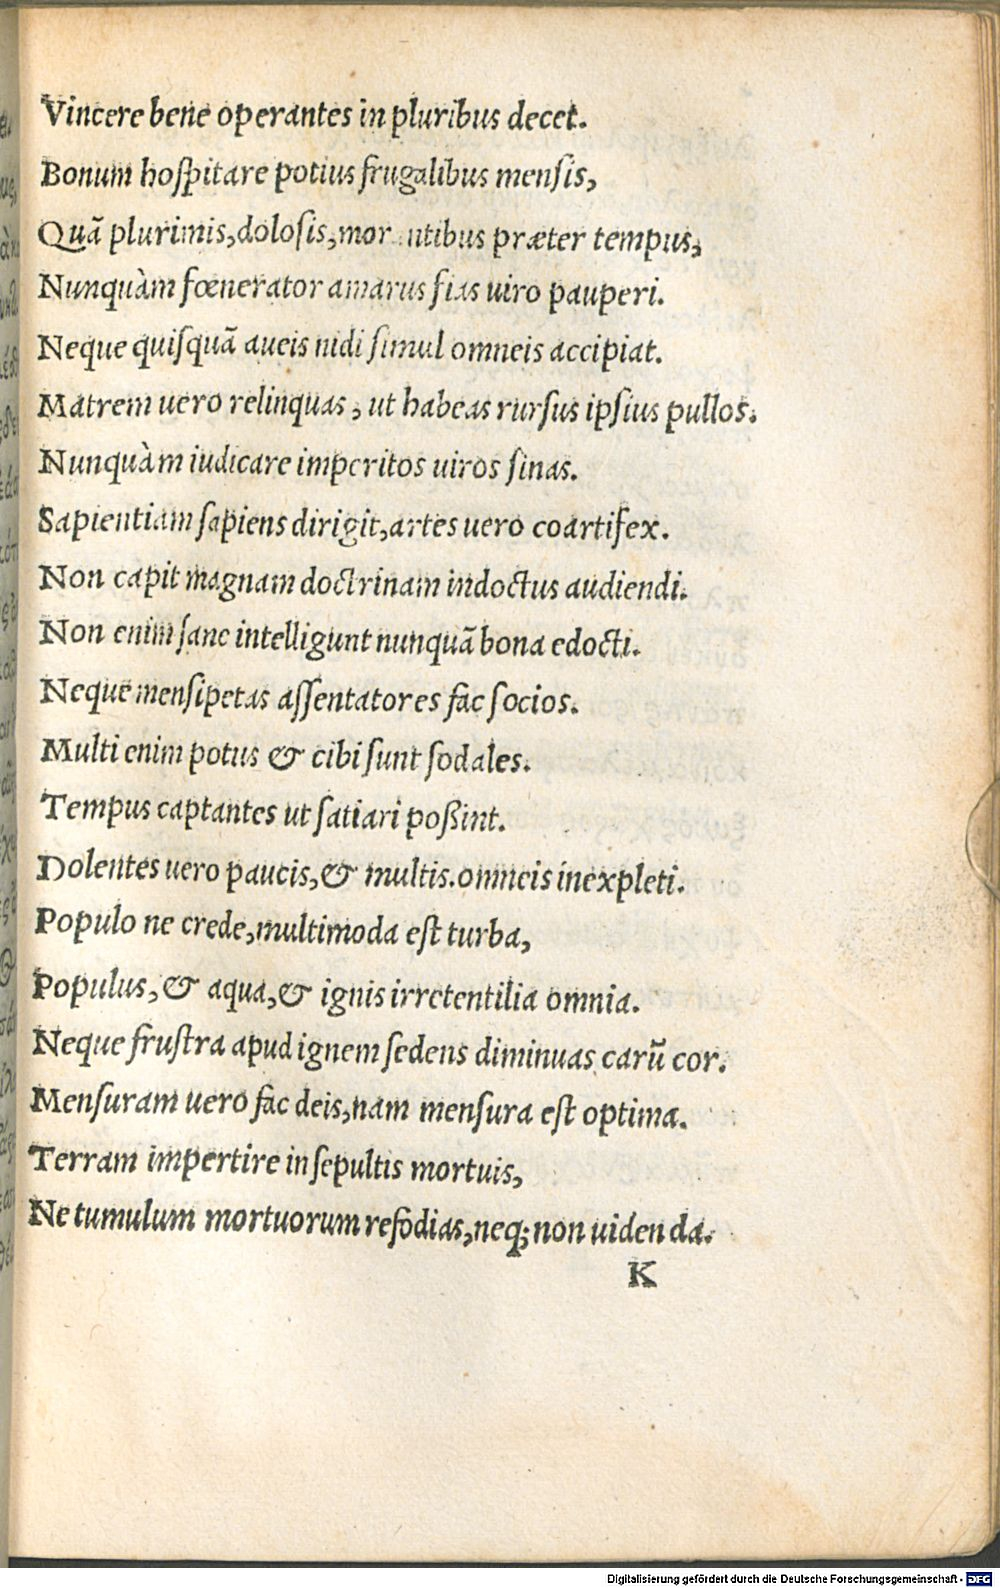 Vincere bene operantes in pluribus decet.
Bonum hospitare potius frugalibus mensis,
Quã plurimis, dolosis, præter tempus,
Nunquàm fœnerator amarus fias uiro pauperi.
Neque quisquã aueis nidi simul omneis accipiat.
Matrem uero relinquas, ut habeas rursus ipsius pullos.
Nunquàm iudicare imperitos uiros sinas.
Sapientiam sapiens dirigit, artes uero coartifex.
Non capit magnam doctrinam indoctus audiendi.
Non enim sane intelligunt nunquã bona edocti.
Neque mensipetas assentatores fac socios.
Multi enim potus & cibi sunt sodales.
Tempus captantes ut satiari poßint.
Dolentes uero paucis, & multis. omneis inexpleti.
Populo ne crede, multimoda est turba,
Populus, & aqua, & ignis irretentilia omnia.
Neque frustra apud ignem sedens diminuas carũ cor.
Mensuram uero fac deis, nam mensura est optima.
Terram impertire insepultis mortuis,
Ne tumulum mortuorum refodias, neq; non uidenda.
K
Digitalisierung gefördert durch die Deutsche Forschungsgemeinschaft - DFG